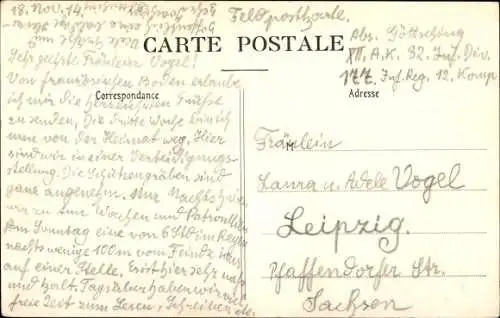 18. Nov. 14.
Feldpostkarte.
CARTE POSTALE
Abs. Göttsching
XII. A. K. 32. Inf. Div.
177. Inf. Reg. 12. Komp
Correspondance
Adresse
Sehr geehrte Fräulein Vogel!
Von französischen Boden erlaube
ich mir die herzlichsten Grüße
zu senden. Die dritte Woche bin ich
nun von der Heimat weg. Hier
sind wir in einer Verteidigungs-
stellung. Die Schützengräben sind
ganz angenehm. Nur Nachts
wir zu tun Wachen und Patrouillen
Am Sonntag eine von 6 Std im Regen
nachts wenige 100 m vom Feinde
auf einer Stelle. Es ist hier sehr naß
und kalt. Tagsüber haben wir
freie Zeit zum Lesen, Schreiben etc.
Fräulein
Laura u. Adele Vogel
Leipzig.
Pfaffendorfer Str.
Sachsen